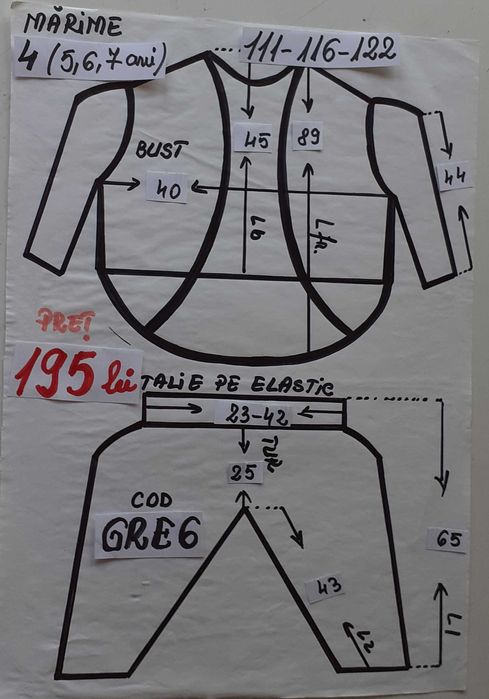 MĂRIME
4 (5,6,7 ani)
111-116-122
BUST
45
89
44
40
Lb
Lfr.
PREȚ
195 lei
TALIE PE ELASTIC
23-42
25
COD
GRE6
65
43
L1
L2